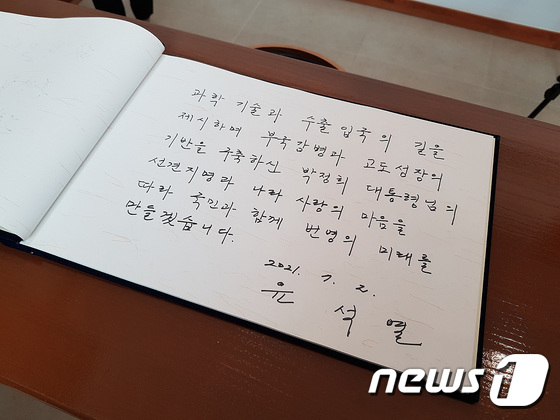 과학 기술과 수출 입국의 길을
제시하며 부국강병과 고도성장의
기반을 구축하신 박정희 대통령님의
선견지명과 나라 사랑의 마음을
따라 국민과 함께 번영의 미래를
만들겠습니다.
2021. 7. 2.
윤 석 열
news1